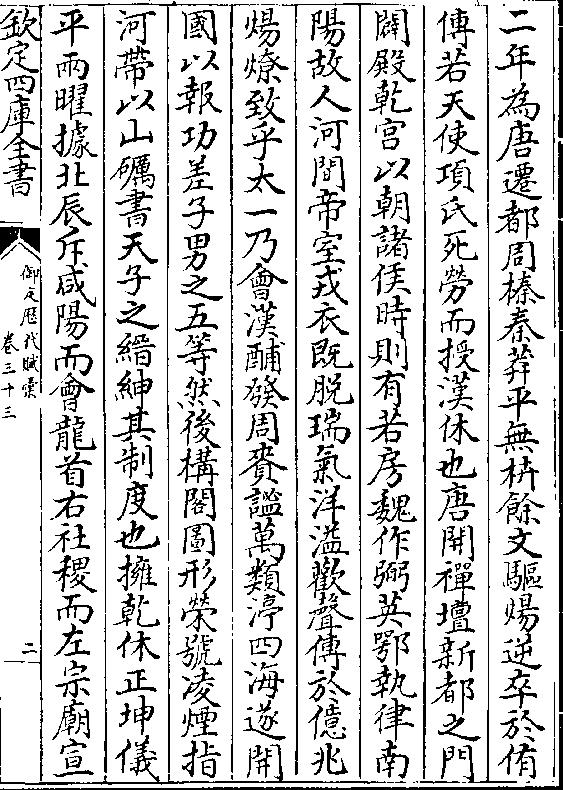 二年為唐遷都周榛秦莽平無枿餘文驅煬逆卒於侑
傳若天使項氏死勞而授漢休也唐開禪壇新都之門
闢殿乾宫以朝諸侯時則有若房魏作弼英鄂執律南
陽故人河間帝室戎衣既脱瑞氣洋溢歡聲傳於億兆
焬燎致乎太一乃會漢酺發周賚謐萬類渟四海遂開
國以報功差子男之五等然後構閣圖形榮號凌煙指
河帶以山礪書天子之縉紳其制度也擁乾休正坤儀
平兩曜據北辰斥咸陽而會龍首右社稷而左宗廟宣
欽定四庫全書
御定歴代賦彚
卷三十三
二